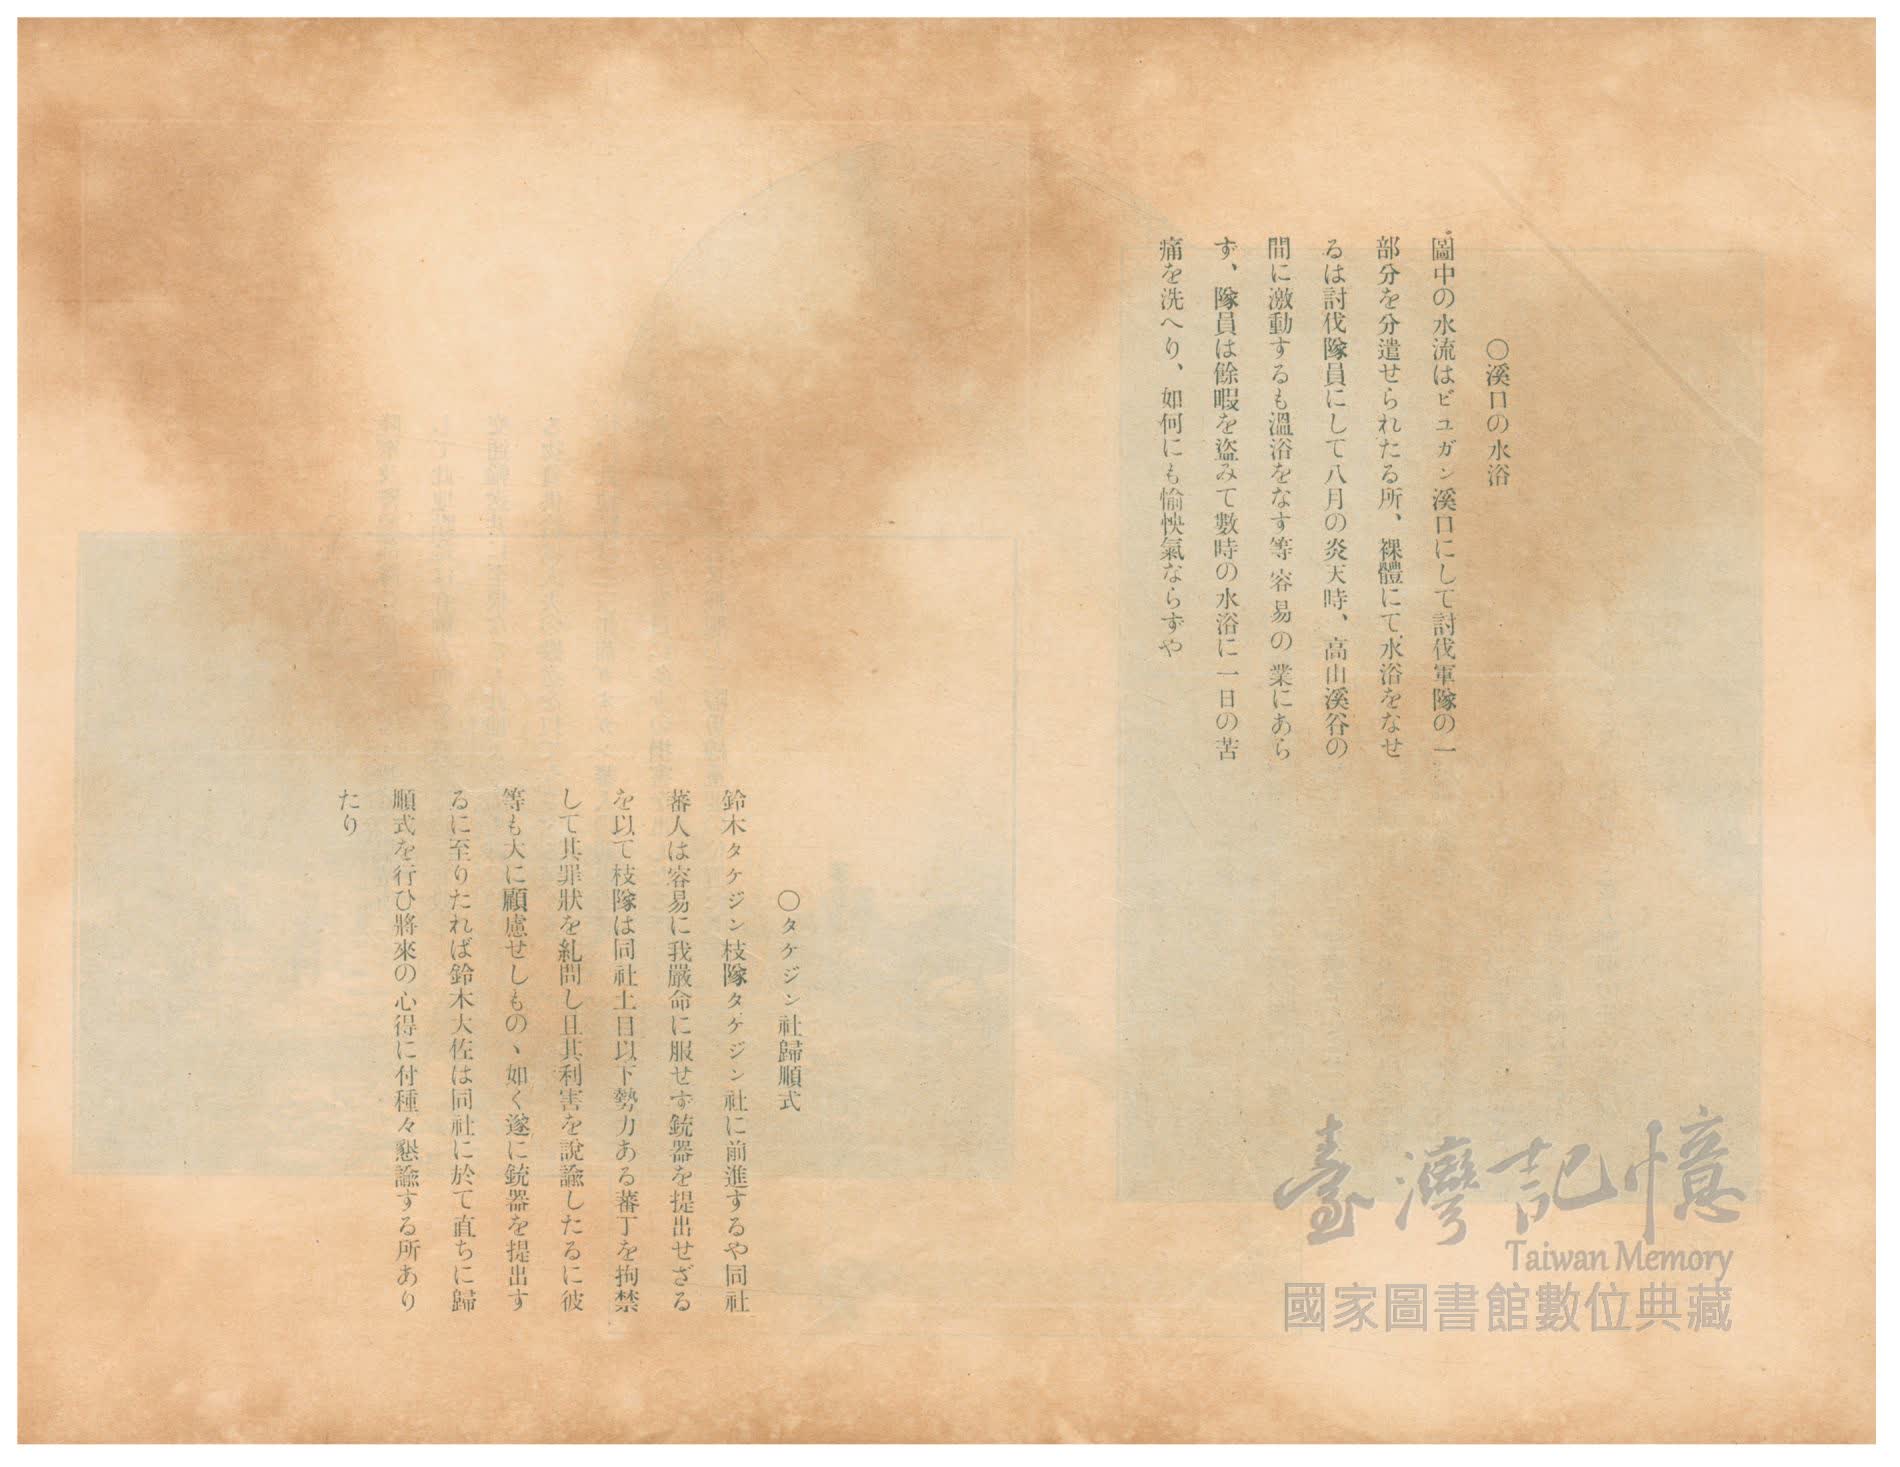 〇溪口の水浴
圖中の水流はビユガン溪口にして討伐軍隊の一
部分を分遣せられたる所、裸體にて水浴をなせ
るは討伐隊員にして八月の炎天時、高山溪谷の
間に激動するも溫浴をなす等容易の業にあら
ず、隊員は餘暇を盜みて數時の水浴に一日の苦
痛を洗へり、如何にも愉怏氣ならずや
〇タケジン社歸順式
鈴木タケジン枝隊タケジン社に前進するや同社
蕃人は容易に我嚴命に服せず銃器を提出せざる
を以て枝隊は同社土目以下勢力ある蕃丁を拘禁
して其罪狀を糺問し且其利害を說諭したるに彼
等も大に顧慮せしものゝ如く遂に銃器を提出す
るに至りたれば鈴木大佐は同社に於て直ちに歸
順式を行ひ將來の心得に付種々懇諭する所あり
たり
臺灣記憶
Taiwan Memory
國家圖書館數位典藏